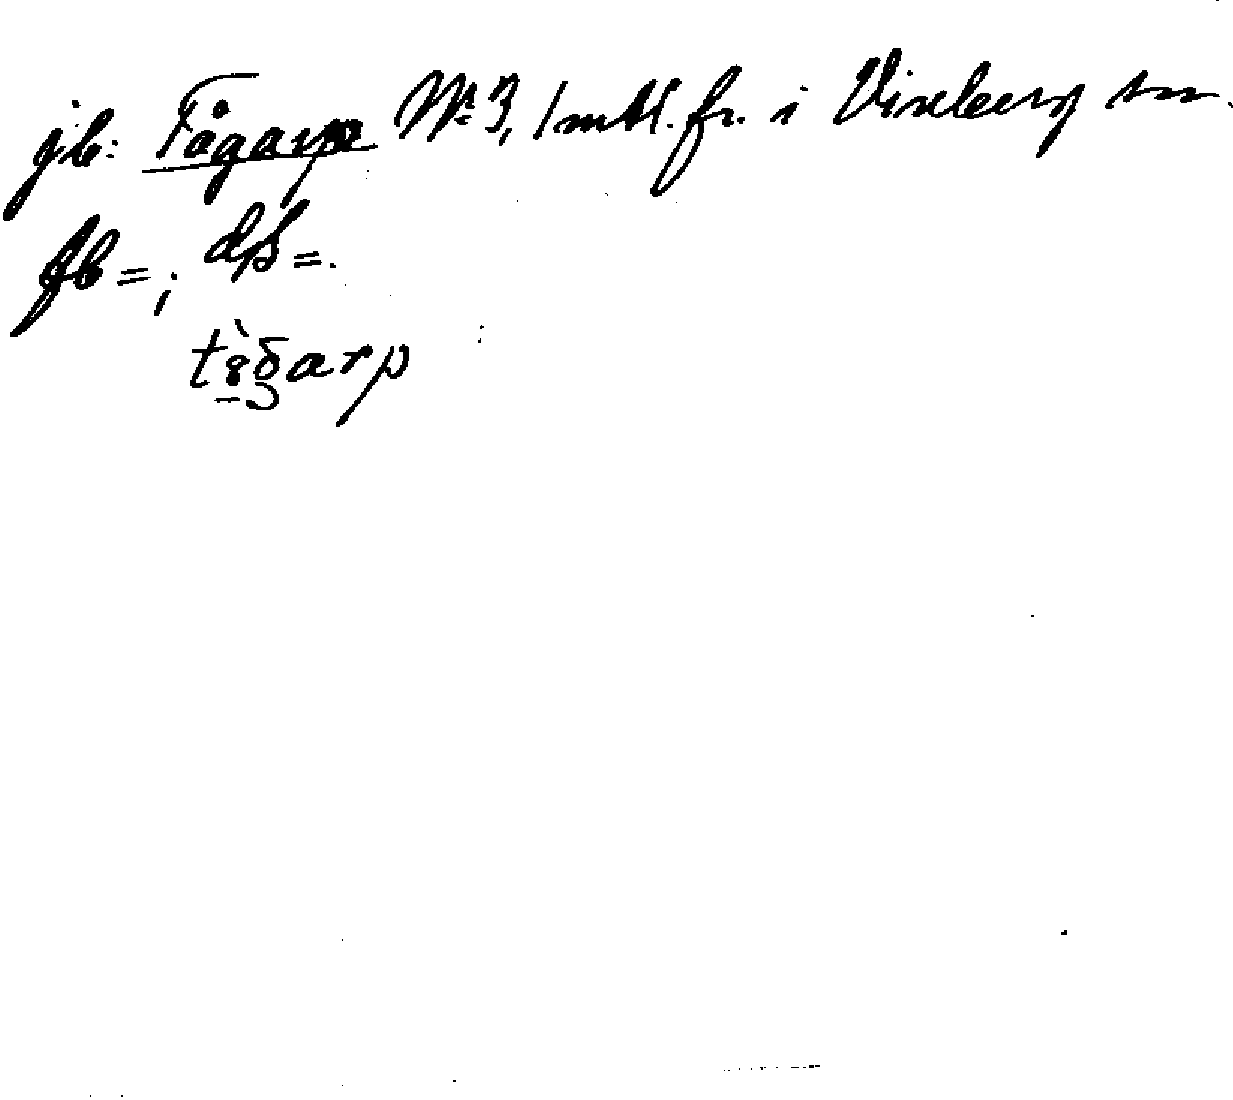 jb: Tågarp No 3, 1 mtl. fr. i Vinberg sn.
fb =; ds =.
tògarp